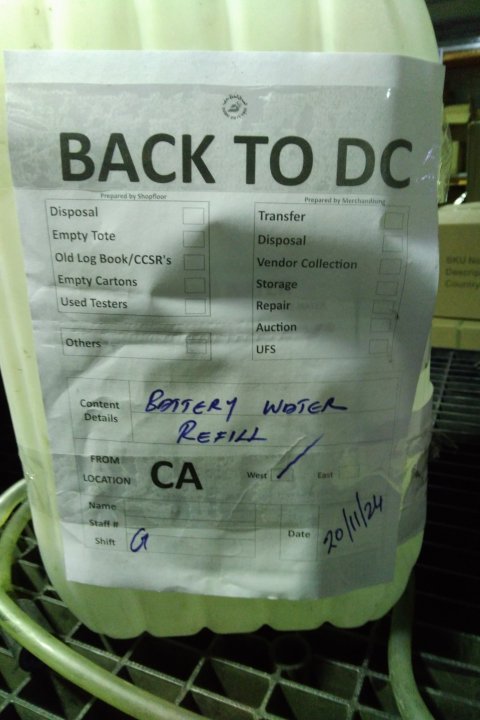 BACK TO DC
Prepared by Shopfloor
Disposal
Empty Tote
Old Log Book/CCSR's
Empty Cartons
Used Testers
Others
Prepared by Merchandising
Transfer
Disposal
Vendor Collection
Storage
Repair
Auction
UFS
Content Details
BATTERY WATER
REFILL
FROM LOCATION
CA
West
East
Name
Staff #
Shift
G
Date
20/11/24
SKU No
Descrip
Country